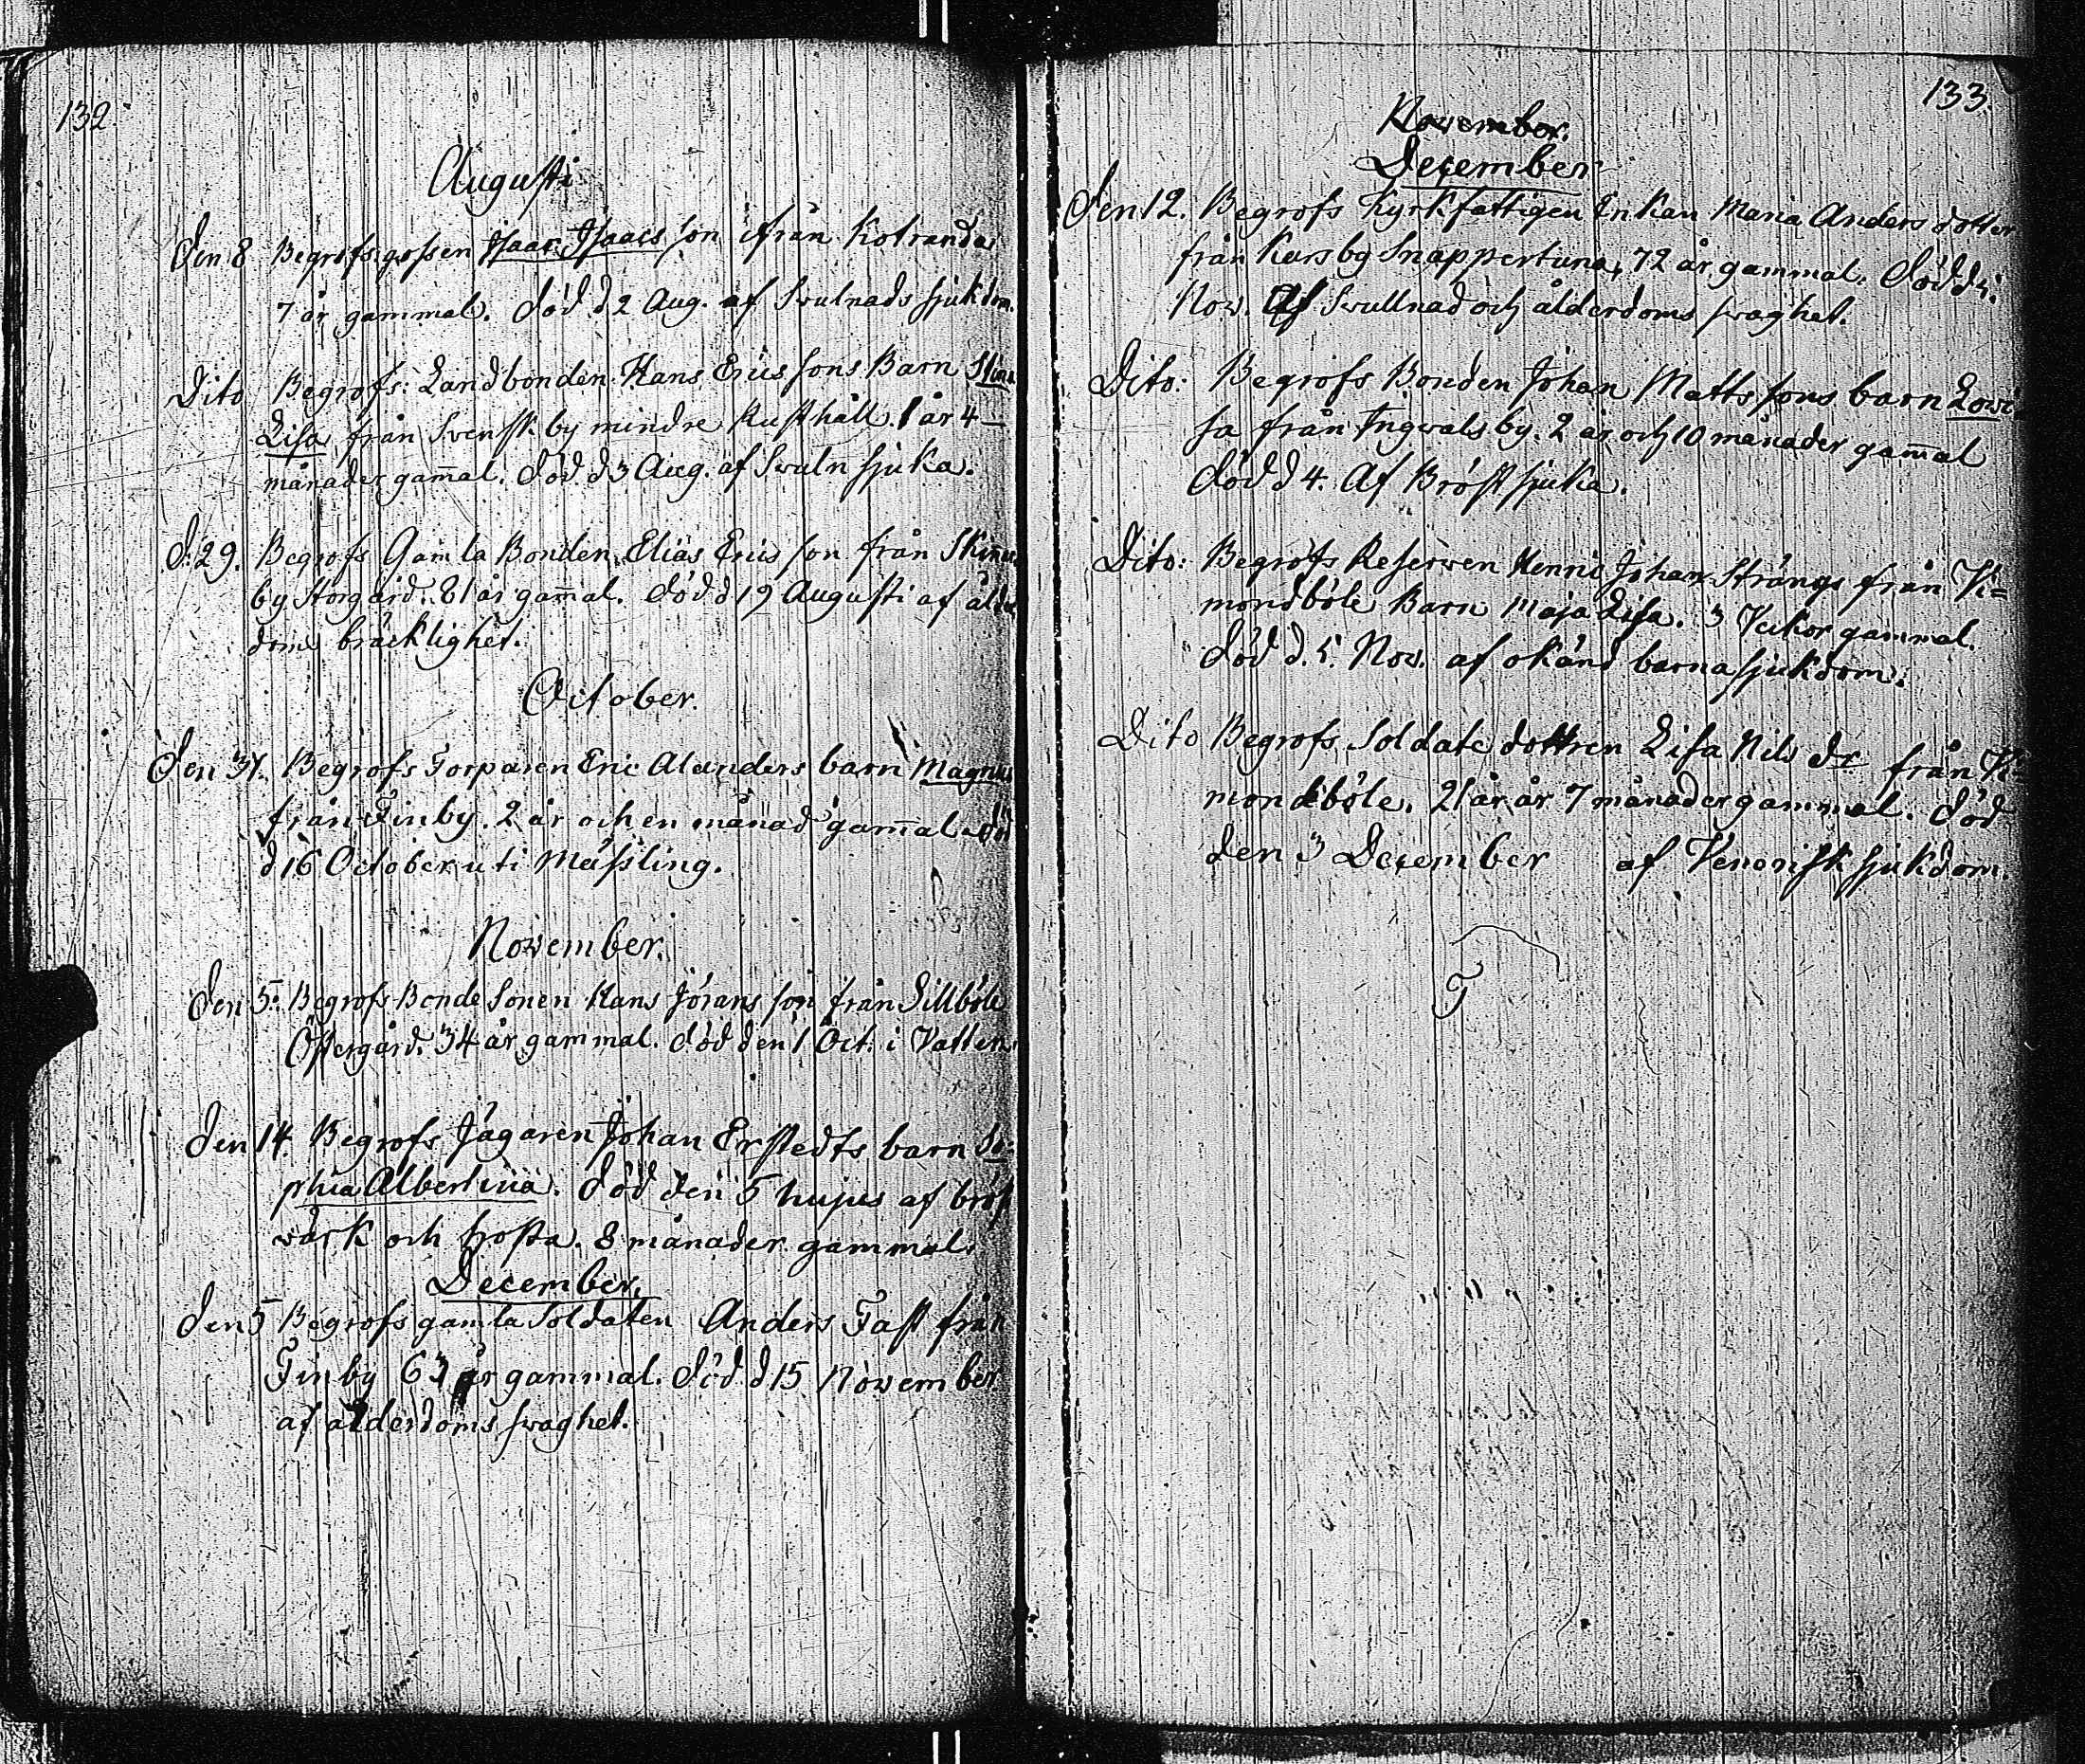 132
Augusti
Den 8 Begrofs gossen Isaac Isaacs son ifrån Kotranda
7 år gammal. Död d 2 Aug. af Swulnads sjukdom.
Dito Begrofs: Landbonden Hans Erics sons Barn Stina
Lisa från Svensk by mindre Rusthåll. 1 år 4
månader gam̄al. Död d 3 Aug. af Swuln sjuka.
D. 29. Begrofs Gamla Bonden Elias Erics son från
by Storgård. 81 år gam̄al. Död d 19 Augusti af ålder
doms bräcklighet.
October.
Den 31. Begrofs Torparen Eric Alanders barn Magnus
från Finby. 2 år och en månad gam̄al. död
d 16 October uti Mässling.
November.
Den 5. Begrofs Bonde Sonen Hans Jörans son från Dillböle
Östergård. 34 år gammal. Död den 1 Oct. i Vatten.
Den 14. Begrofs Jägaren Johan Erstedts barn So-
phia Albertina. Död den 5 hujus af bröst
värk och hosta. 8 månader gammal.
December.
Den 5 Begrofs gamla Soldaten Anders Fast från
Finby 63 år gammal. Död d 15 November
af ålderdoms swaghet.
133.
November.
December
Den 12. Begrofs Kyrkfattigen Enkan Maria Anders dotter
från Karsby Snappertuna, 72 år gammal. Död d
Nov. Af Swullnad och ålderdoms swaghet.
Dito: Begrofs Bonden Johan Matts sons barn Lowi
sa från Ingwalsby. 2 år och 10 månader gam̄al
död d 4. Af Bröst sjuka.
Dito: Begrofs Reserven Henric Johan Strångs från Vi=
mondböle Barn Maja Lisa. 3 Veckor gammal.
Död d. 5. Nov. af okänd barnasjukdom.
Dito Begrofs Soldate dottren Lisa Nils dr från Vi-
mondböle. 21 år år 7 månader gammal. Död
den 3 December af Venerisk sjukdom.